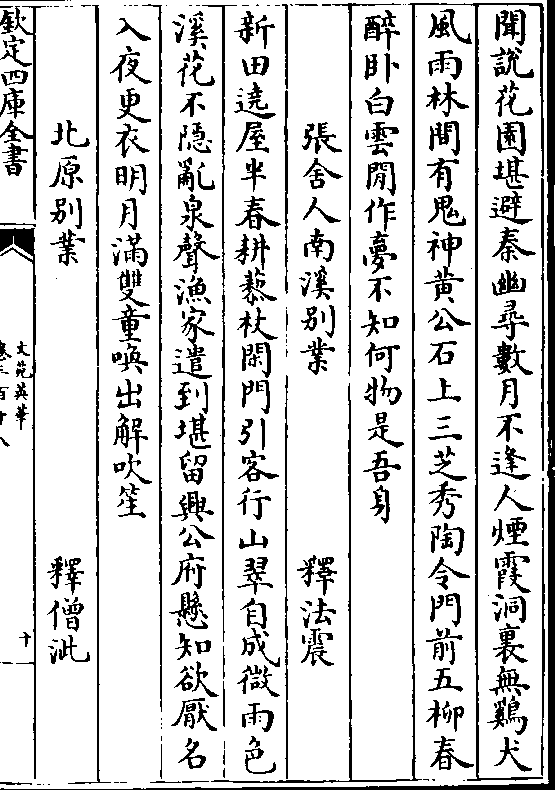 聞説花園堪避秦幽尋數月不逢人煙霞洞裏無鷄犬
風雨林間有鬼神黄公石上三芝秀陶令門前五柳春
醉卧白雲閒作夢不知何物是吾身
張舍人南溪别業　釋法震
新田遶屋半春耕藜杖閑門引客行山翠自成微雨色
溪花不隠亂泉聲漁家遣到堪留興公府懸知欲厭名
入夜更衣明月滿雙童喚出解吹笙
北原别業　釋僧泚
欽定四庫全書
文苑英華
卷三百十八
十